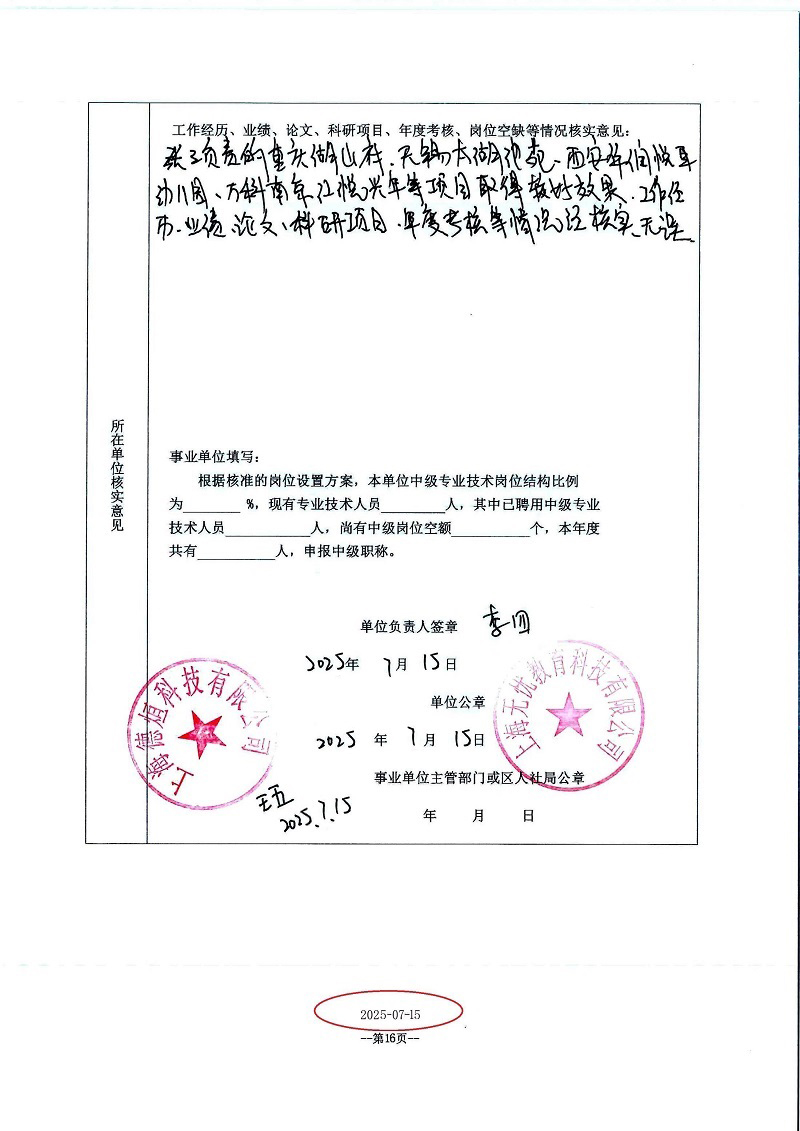 工作经历、业绩、论文、科研项目、年度考核、岗位空缺等情况核实意见：
张三负责的重庆湖山村、无锡太湖、西安华润悦
幼儿园、万科南京江悦兴年等项目取得较好效果、工作经
历、业绩、论文、科研项目、年度考核等情况经核实、无误。
所在单位核实意见
事业单位填写：
根据核准的岗位设置方案，本单位中级专业技术岗位结构比例
为________ %，现有专业技术人员_________人，其中已聘用中级专业
技术人员____________人，尚有中级岗位空额___________个，本年度
共有___________人，申报中级职称。
单位负责人签章 李四
2025年 7月 15日
单位公章
2025 年 7月 15日
事业单位主管部门或区人社局公章
年 月 日
上海德恒科技有限公司
上海无忧教育科技有限公司
王五
2025.7.15
2025-07-15
--第16页--